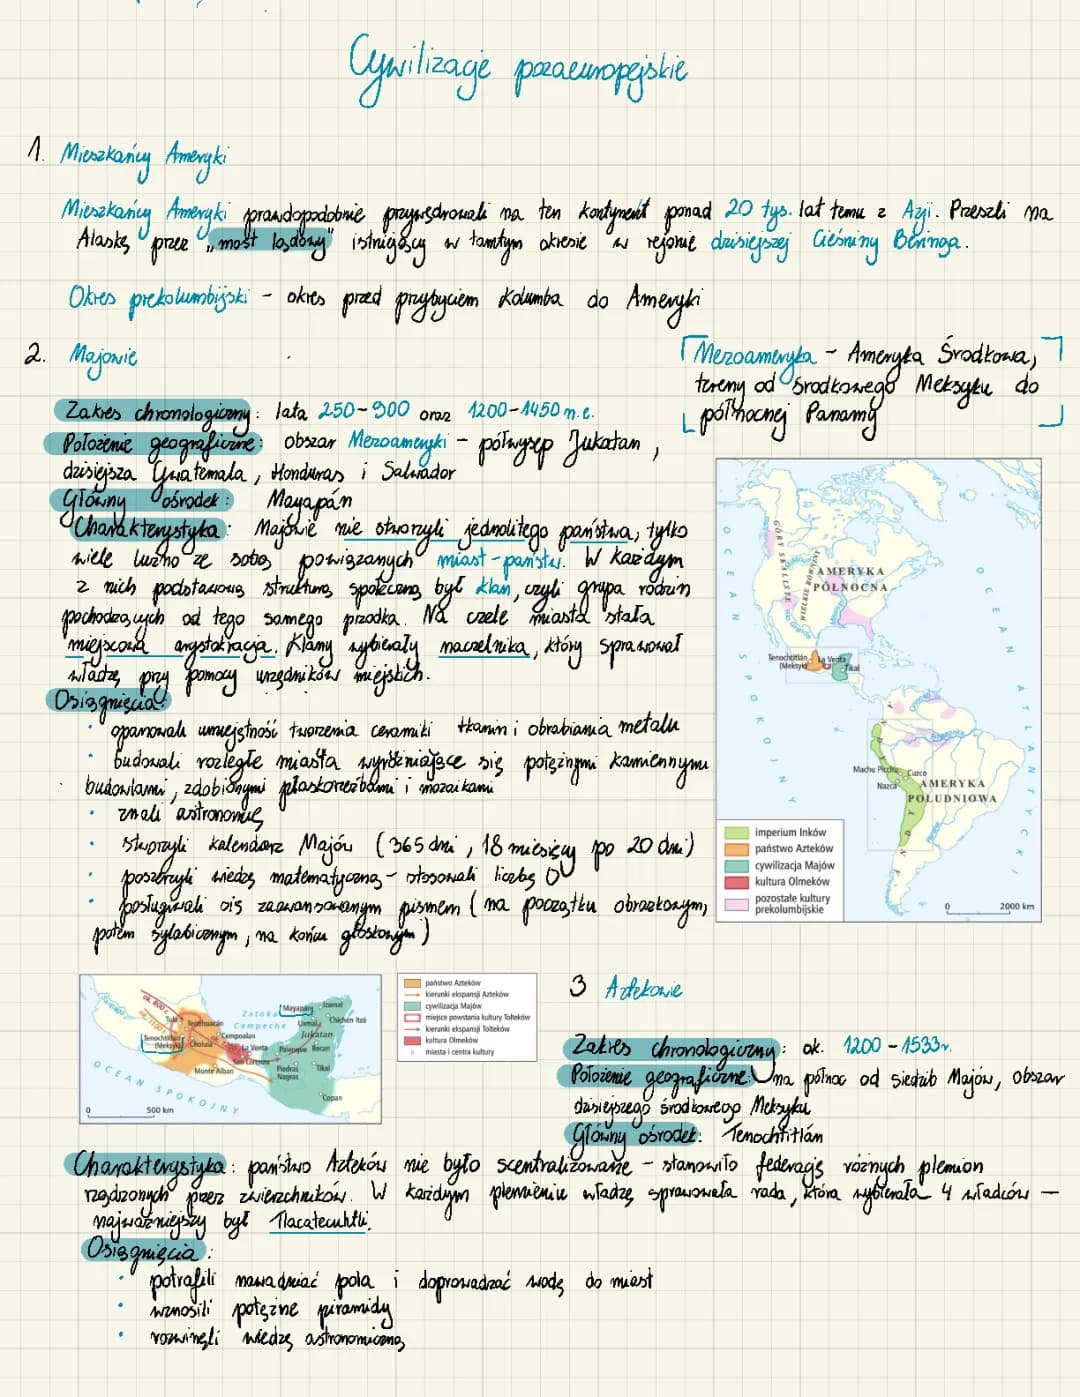 Cywilizacje pozaeuropejskie
1. Mieszkańcy Ameryki
Mieszkańcy Ameryki prawdopodobnie przywędrowali na ten kontynent ponad 20 tys. lat temu z Azji. Przeszli na
Alaskę przez „most lądowy” istniejący w tamtym okresie w rejonie dzisiejszej Cieśniny Beringa.
Okres prekolumbijski - okres przed przybyciem Kolumba do Ameryki
2. Majowie
Mezoameryka - Ameryka Środkowa,
tereny od środkowego Meksyku do
północnej Panamy
Zakres chronologiczny: lata 250-900 oraz 1200-1450 n.e.
Położenie geograficzne: obszar Mezoameryki - półwysep Jukatan,
dzisiejsza Gwatemala, Honduras i Salwador
Główny ośrodek: Mayapán
Charakterystyka: Majowie nie stworzyli jednolitego państwa, tylko
wiele luźno ze sobą powiązanych miast-państw. W każdym
z nich podstawową strukturą społeczną był klan, czyli grupa rodzin
pochodzących od tego samego przodka. Na czele miasta stała
miejscowa arystokracja. Klany wybierały naczelnika, który sprawował
władzę przy pomocy urzędników miejskich.
Osiągnięcia:
• opanowali umiejętność tworzenia ceramiki tkanin i obrabiania metalu
• budowali rozległe miasta wyróżniające się potężnymi kamiennymi
budowlami, zdobionymi płaskorzeźbami i mozaikami
• znali astronomię
• stworzyli kalendarz Majów (365 dni, 18 miesięcy po 20 dni)
• poszerzyli wiedzę matematyczną - stosowali liczbę 0
• posługiwali się zaawansowanym pismem (na początku obrazkowym,
potem sylabicznym, na końcu głoskowym)
OCEAN SPOKOJNY
OCEAN ATLANTYCKI
GÓRY SKALISTE
WIELKIE RÓWNINY
AMERYKA
PÓŁNOCNA
Tenochtitlán
(Meksyk)
La Venta
Tikal
Machu Picchu
Cuzco
Nazca
ANDY
AMERYKA
POŁUDNIOWA
imperium Inków
państwo Azteków
cywilizacja Majów
kultura Olmeków
pozostałe kultury
prekolumbijskie
0 2000 km
ok. 800 r.
Tula
Teotihuacán
Tenochtitlán
(Meksyk)
Cholula
Cempoalan
Zatoka
Campeche
La Venta
San Lorenzo
Monte Alban
Mayapán
Izamal
Uxmal
Chichén Itzá
Jukatan
Palenque
Becan
Piedras
Negras
Tikal
Copan
OCEAN SPOKOJNY
0 500 km
państwo Azteków
kierunki ekspansji Azteków
cywilizacja Majów
miejsce powstania kultury Tolteków
kierunki ekspansji Tolteków
kultura Olmeków
miasta i centra kultury
3 Aztekowie
Zakres chronologiczny: ok. 1200 - 1533r.
Położenie geograficzne: na północ od siedzib Majów, obszar
dzisiejszego środkowego Meksyku
Główny ośrodek: Tenochtitlán
Charakterystyka: państwo Azteków nie było scentralizowane - stanowiło federację różnych plemion
rządzonych przez zwierzchników. W każdym plemieniu władzę sprawowała rada, która wybierała 4 władców -
najważniejszy był Tlacatecuhtli.
Osiągnięcia:
• potrafili nawadniać pola i doprowadzać wodę do miast
• wznosili potężne piramidy
• rozwinęli wiedzę astronomiczną